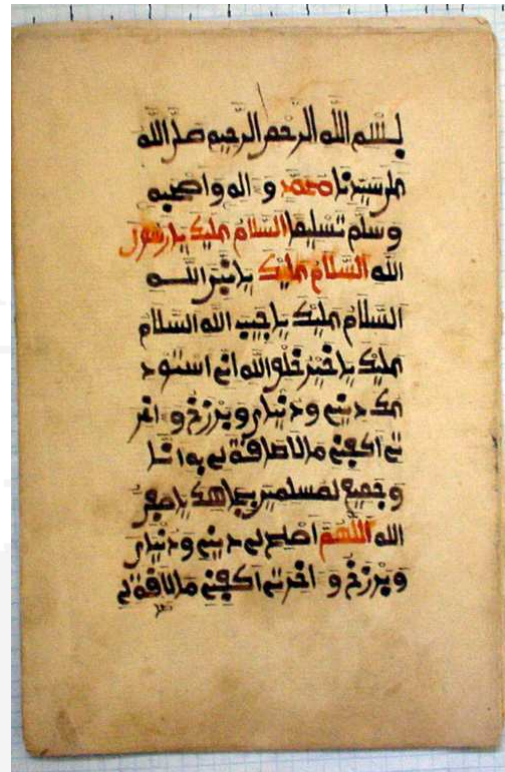 بسم الله الرحمن الرحيم صلى الله
على سيدنا محمد و اله واصحبه
وسلم تسليما السلام عليك يا رسول
الله السلام عليك يا نبي الله
السلام عليك يا حبيب الله السلام
عليك يا خير خلو الله اني استود
عك ديني ودنياي وبرزخ و اخر
تي اكفني ما لا طاقة لي به انا
و جميع لمسلمين بجاهك يا صفي
الله اللهم اصلح لي ديني ودنياي
وبرزخ و اخرتي اكفني ما لا قة لي